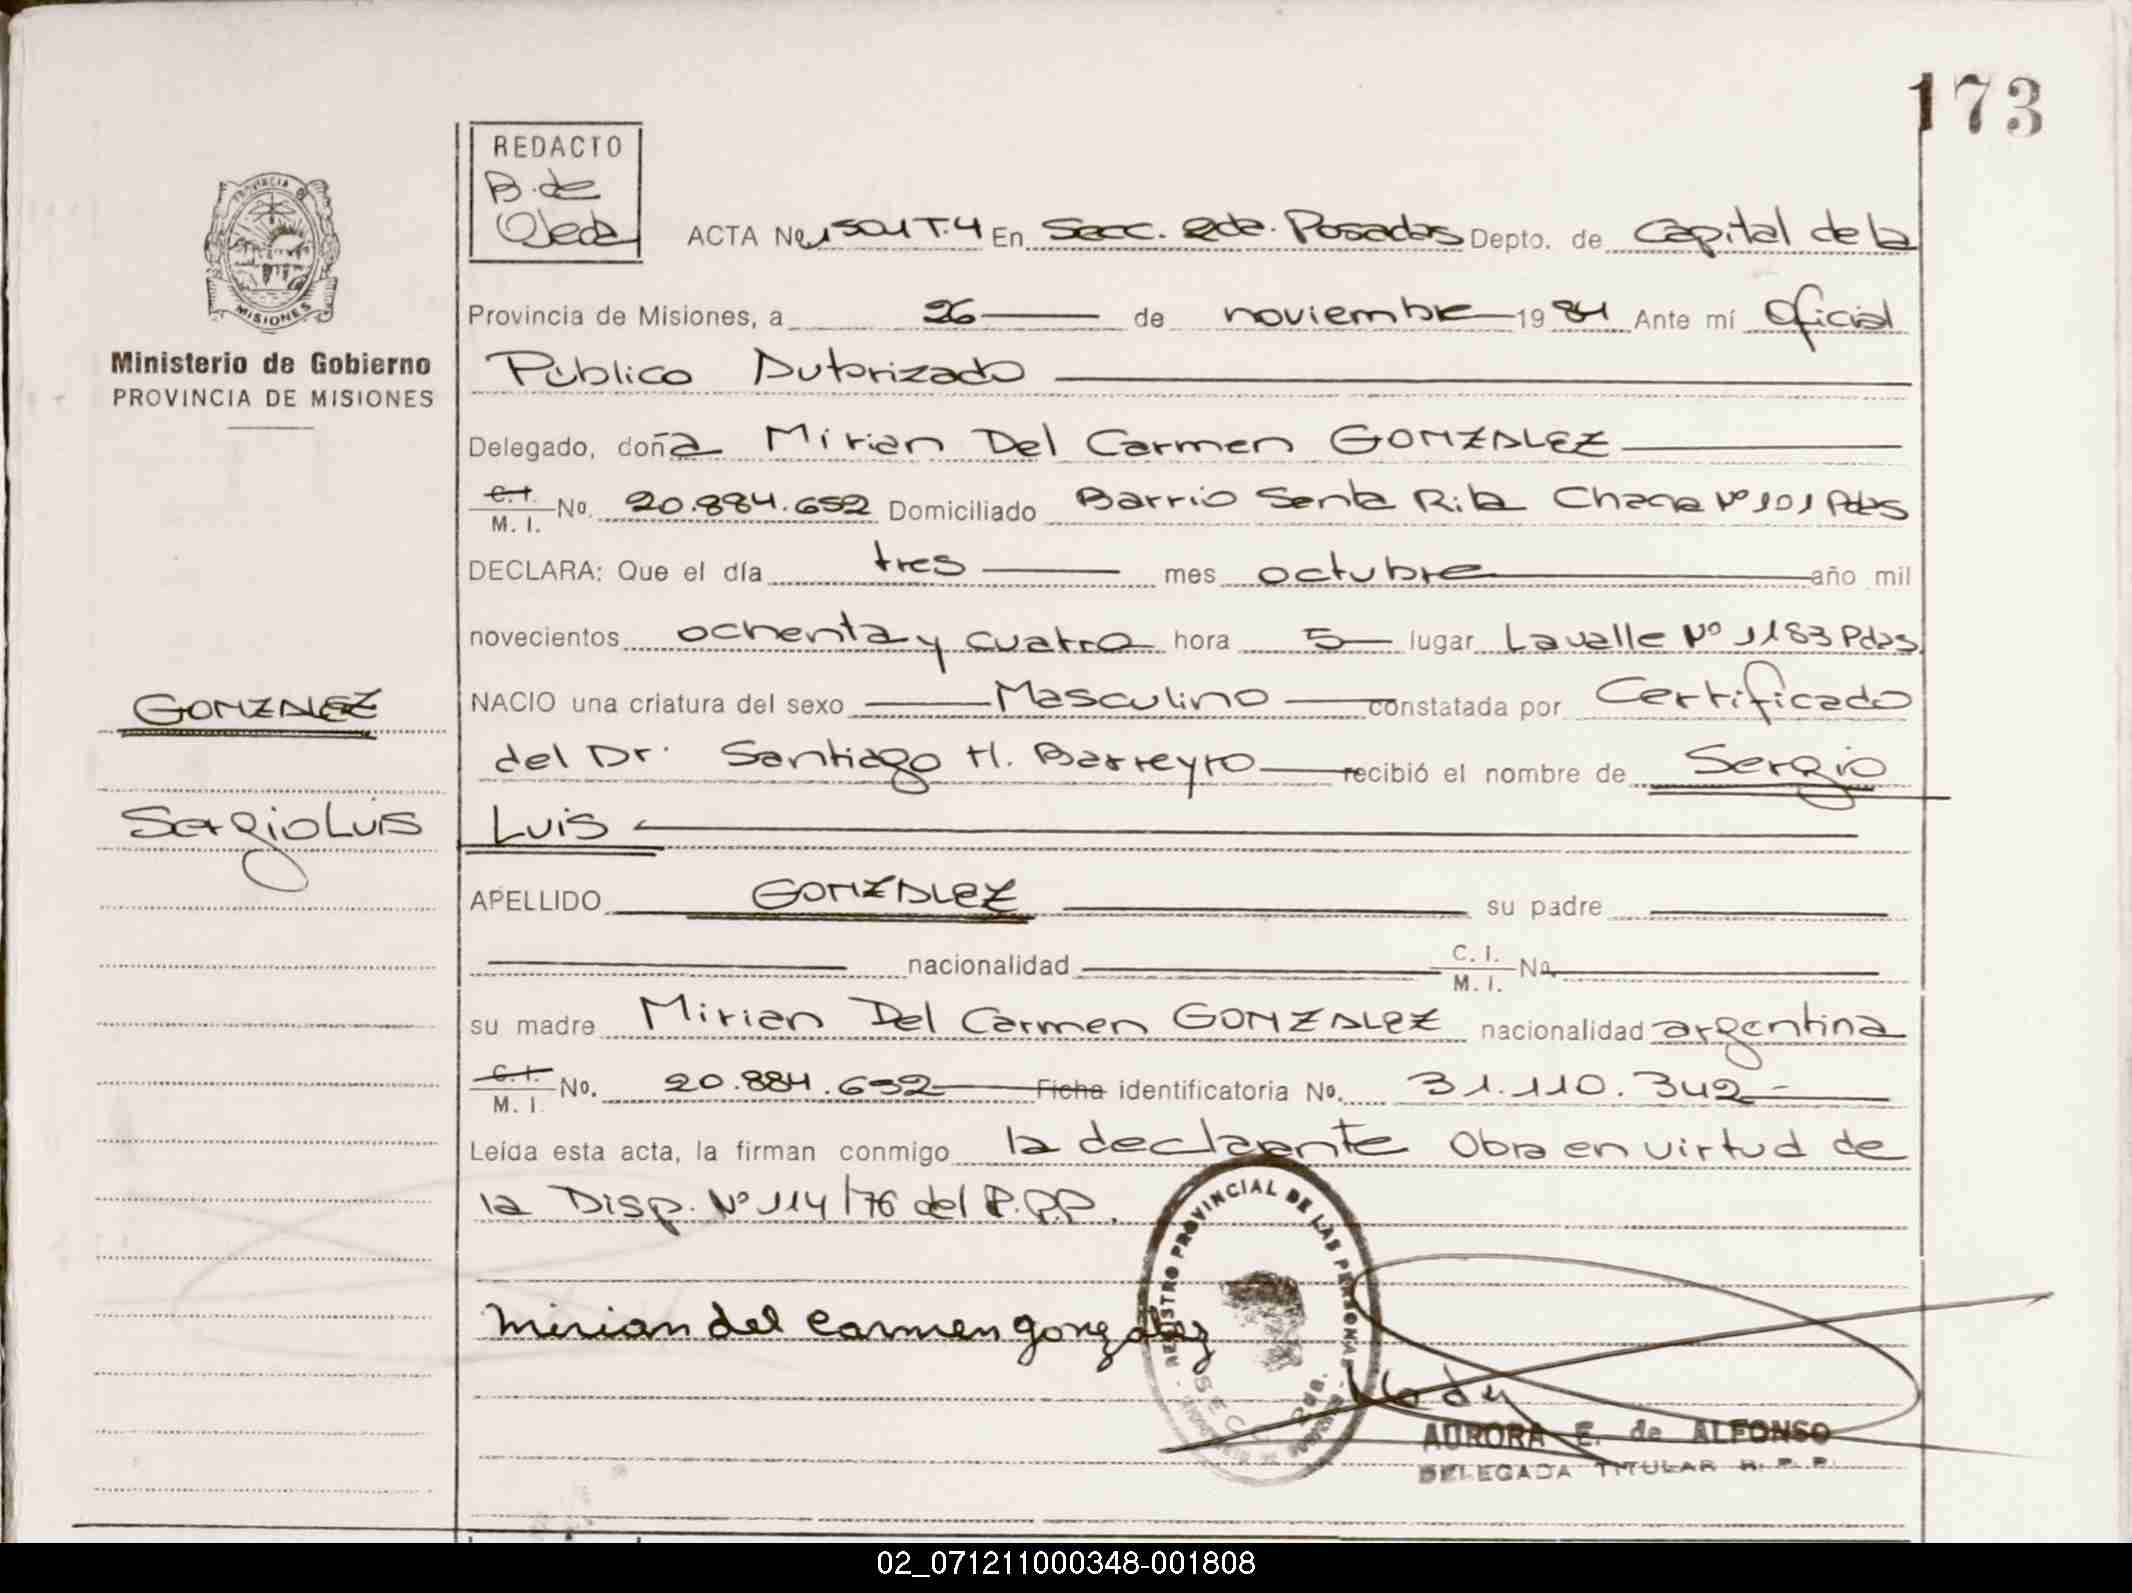 173
REDACTO
B. de
Ojeda
PROVINCIA DE
MISIONES
Ministerio de Gobierno
PROVINCIA DE MISIONES
ACTA No 1501 T.4 En Secc. 2da. Posadas Depto. de Capital de la
Provincia de Misiones, a 26 de noviembre 1984 Ante mí Oficial
Público Autorizado
Delegado, doña Mirian Del Carmen GONZALEZ
C.I. / M. I. No. 20.884.652 Domiciliado Barrio Santa Rita Chacra Nº 101 Pdas
DECLARA: Que el día tres mes octubre año mil
novecientos ochenta y cuatro hora 5 lugar Lavalle Nº 1183 Pdas
GONZALEZ
NACIO una criatura del sexo Masculino constatada por Certificado
del Dr. Santiago H. Barreyro recibió el nombre de Sergio
Sergio Luis
Luis
APELLIDO GONZALEZ su padre
nacionalidad C. I. / M. I. No.
su madre Mirian Del Carmen GONZALEZ nacionalidad argentina
C. I. / M. I. No. 20.884.652 Ficha identificatoria No. 31.110.342-
Leída esta acta, la firman conmigo la declarante Obra en virtud de
la Disp. Nº 114/76 del R.P.P.
REGISTRO PROVINCIAL DE LAS PERSONAS
SECC. 2da.
Mirian del Carmen gonzalez
AURORA E. de ALFONSO
DELEGADA TITULAR R. P. P.
02_071211000348-001808